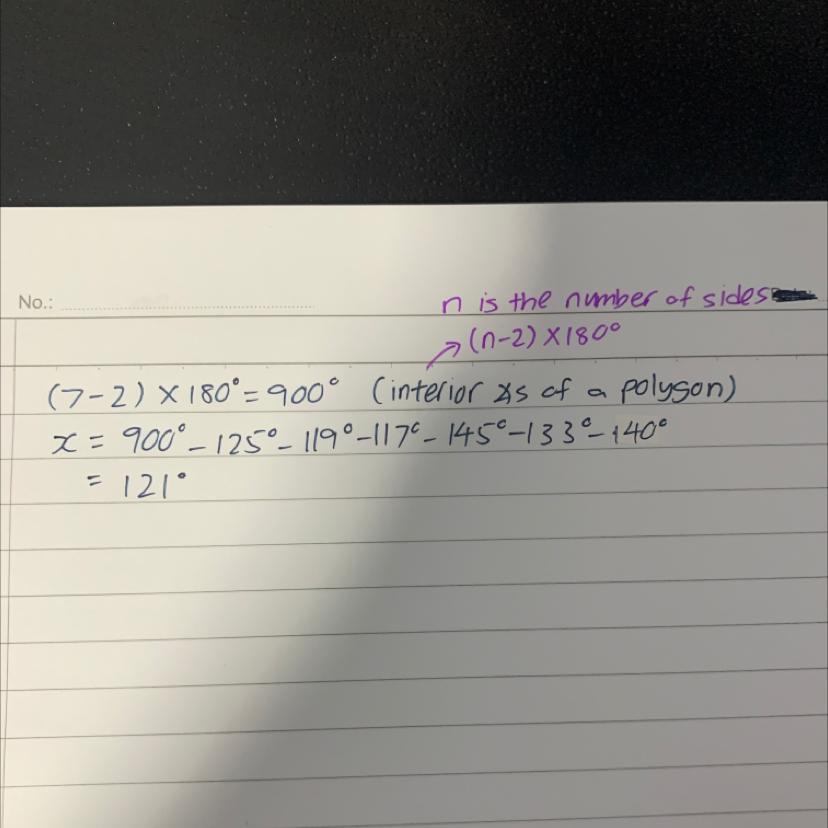 No.:
n is the number of sides
(n-2) × 180°
(7-2) × 180° = 900° (interior ∠s of a polygon)
x = 900° - 125° - 119° - 117° - 145° - 133° - 140°
= 121°